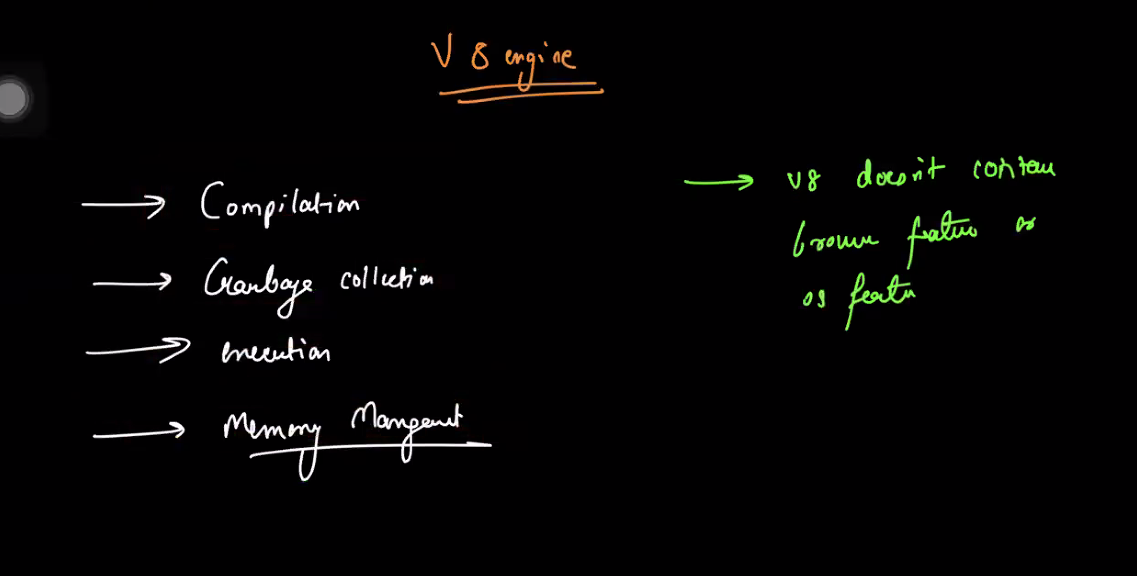 V 8 engine
Compilation
Garbage collection
execution
Memory Mangement
V8 doesn't contain
browser feature or
os featu